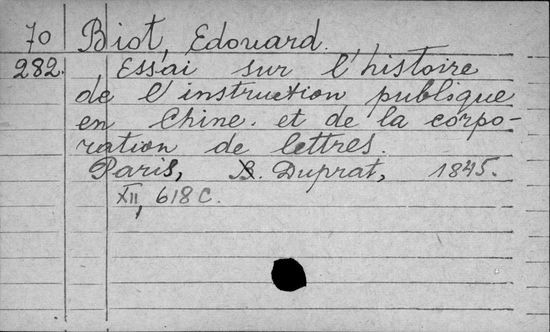 70 Biot, Edouard.
282. Essai sur l'histoire
de l'instruction publique
en Chine. et de la corpo-
ration de lettres.
Paris, B. Duprat, 1845.
XII, 618 C.